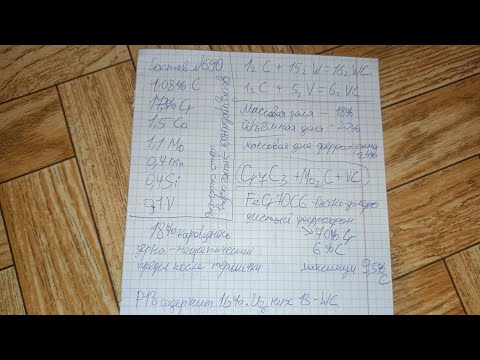 Состав N690
1.08% C
17,3% Cr
1,5 Co
1,1 Mo
0,4 Mn
0,4 Si
0,1 V
12 C + 152 W = 162 WC
12 C + 5 V = 62 VC
Массовая доля - 18%
Объёмная доля - 20%
Массовая доля феррохрома
Cr7C3 + Mo2C + VC
FeCr70C6 - высокоуглеро
дистый феррохром
70% Cr
6% C
максимум 9,5% C
18% карбидного
зерна - теоретический
предел после термички
P18 содержит 16%. Из них 13 - WC